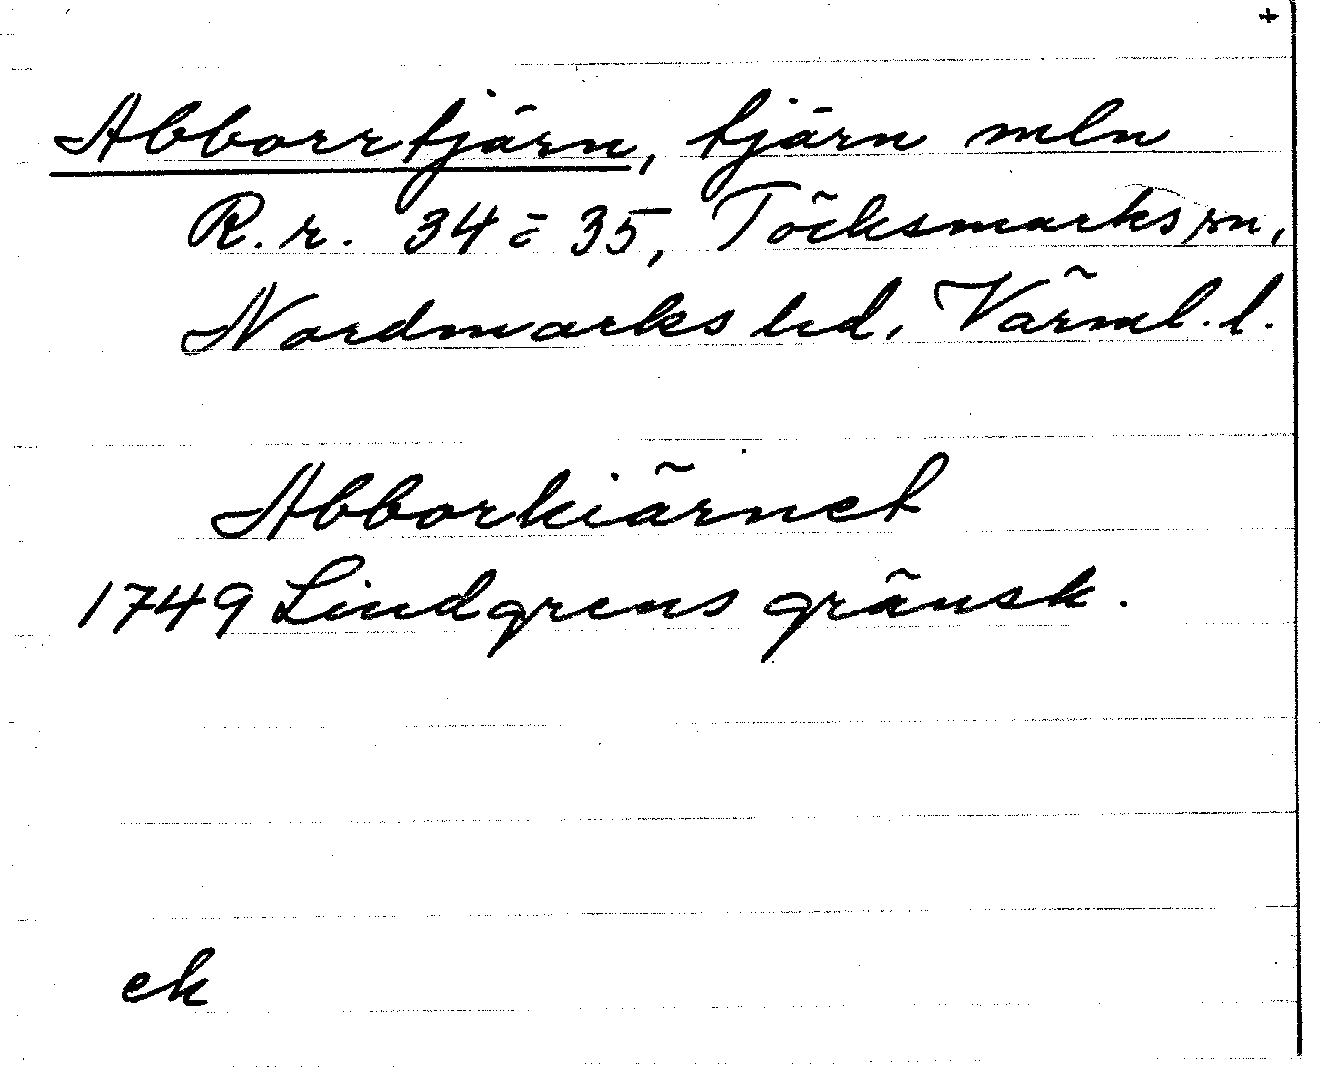 +
Abborrtjärn, tjärn mln
R.r. 34 o 35, Töcksmarks sn,
Nordmarks hd, Värml. l.
Abborkiärnet
1749 Lindgrens gränsk.
ek